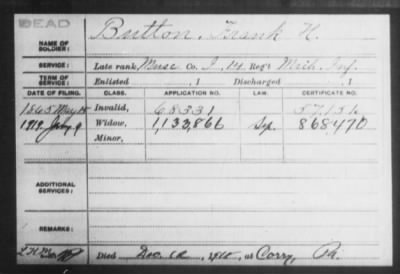 DEAD
NAME OF SOLDIER: Button, Frank H.
SERVICE: Late rank, Musc Co. I, 14 Reg't Mich. Inf.
TERM OF SERVICE: Enlisted , 1 Discharged , 1
DATE OF FILING. CLASS. APPLICATION NO. LAW. CERTIFICATE NO.
1865 May Invalid, 68331 57151
1919 Widow, 1,133,866 868470
Minor,
ADDITIONAL SERVICES:
REMARKS:
Died 1918, at Corry, Pa.